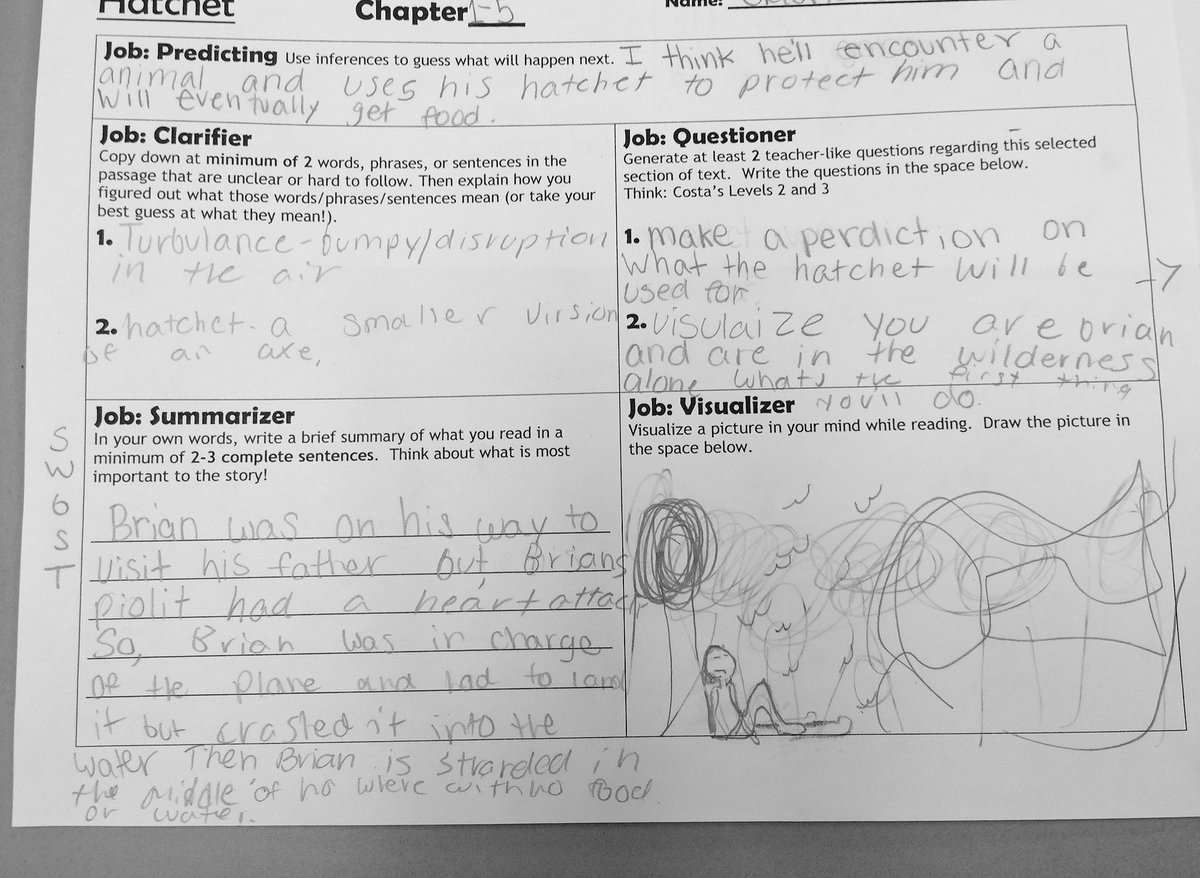 Hatchet
Chapter 1-5
Name:
Job: Predicting Use inferences to guess what will happen next. I think he'll encounter a
animal and uses his hatchet to protect him and
will eventually get food.
Job: Clarifier
Copy down at minimum of 2 words, phrases, or sentences in the
passage that are unclear or hard to follow. Then explain how you
figured out what those words/phrases/sentences mean (or take your
best guess at what they mean!).
1. Turbulance - bumpy/disruption
in the air
2. hatchet - a smaller virsion
of an axe,
Job: Questioner
Generate at least 2 teacher-like questions regarding this selected
section of text. Write the questions in the space below.
Think: Costa's Levels 2 and 3
1. make a perdiction on
what the hatchet will be
used for
2. visulaize you are brian
and are in the wilderness
alone whats the first thing
you'll do.
Job: Summarizer
In your own words, write a brief summary of what you read in a
minimum of 2-3 complete sentences. Think about what is most
important to the story!
S
W
B
S
T
Brian was on his way to
visit his father but, Brians
piolit had a heart attack
So, Brian was in charge
of the plane and had to land
it but crashed it into the
water Then Brian is stranded in
the middle of no where with no food
or water.
Job: Visualizer
Visualize a picture in your mind while reading. Draw the picture in
the space below.